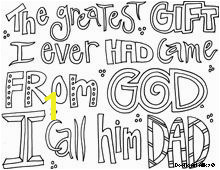 The greatest GIFT
I ever HAD came
FROM GOD
I call him DAD